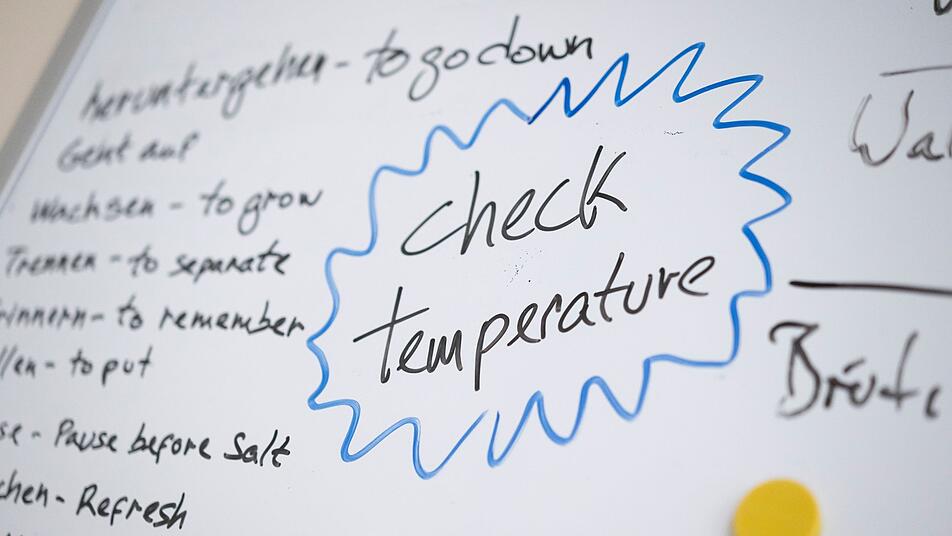 heruntergehen - to go down
Geht auf
Wachsen - to grow
Trennen - to separate
rinnern - to remember
llen - to put
se - Pause before Salt
chen - Refresh
check
temperature
Wa